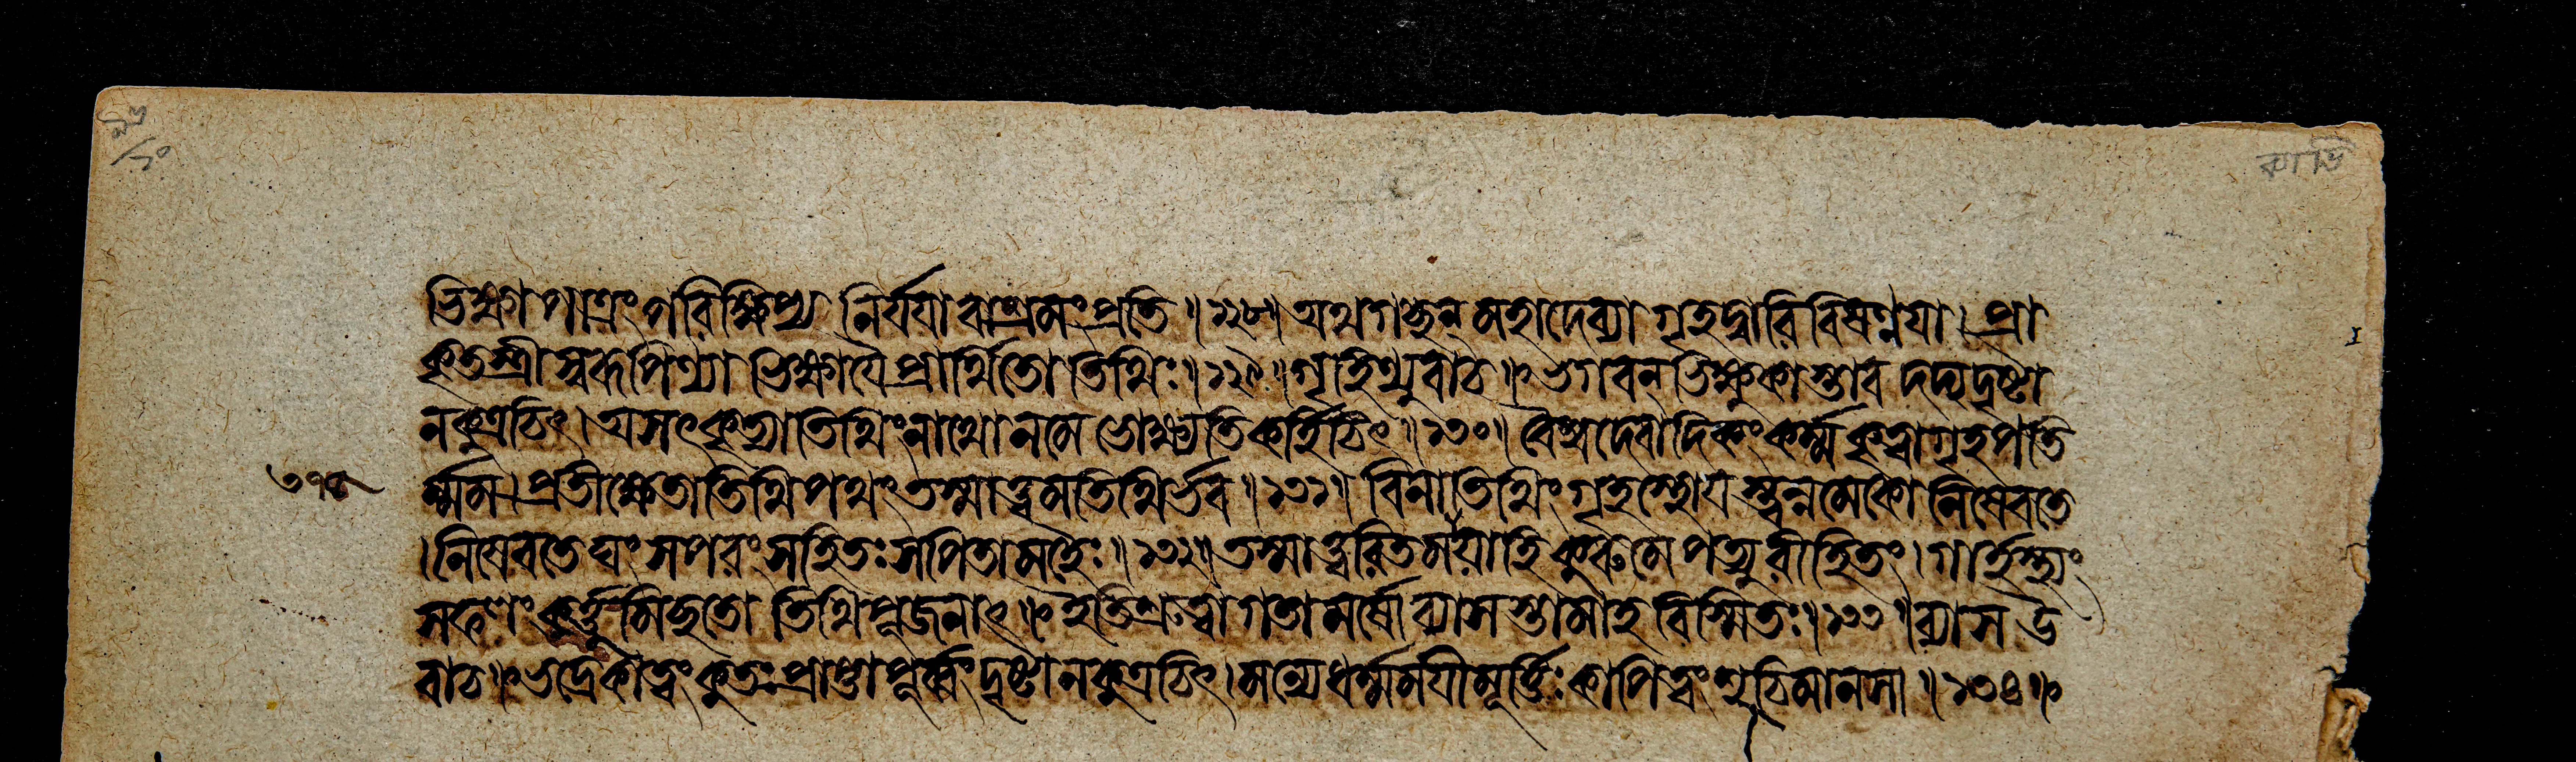 ভিক্ষাপাত্রং পরিক্ষিপ্য নির্যযাবাশ্রমং প্রতি ॥ ১২৮ ॥ অথ গচ্ছন্ মহাদেব্যা গৃহদ্বারি নিষণ্ণযা । প্রা
কৃতস্ত্রীস্বরূপিণ্যা ভিক্ষাযৈ প্রার্থিতো তিথিঃ ॥ ১২৯ ॥ গৃহিণ্যুবাচ ॥ ভগবন্ ভিক্ষুকাস্তাবদদ্য দৃষ্টা
ন কুত্রচিৎ । অসৎকৃত্যাতিথিং নাথো ন মে ভোক্ষ্যতি কর্হিচিৎ ॥ ১৩০ ॥ বৈশ্বদেবাদিকং কর্ম্ম কৃত্বা গৃহপতি
র্ম্মম । প্রতীক্ষেতাতিথিপথং তস্মাত্ত্বমতিথির্ভব ॥ ১৩১ ॥ বিনাতিথিং গৃহস্থো যস্ত্বন্নমেকো নিষেবতে
। নিষেবতেঘং স পরং সহিতঃ স পিতামহৈঃ ॥ ১৩২ ॥ তস্মাত্ত্বরিতমাযাহি কুরু মে পত্যুরীহিতং । গার্হস্থ্যং
সফলং কর্ত্তুমিচ্ছতো তিথিপূজনাৎ ॥ ইতি শ্রুত্বা গতামর্ষো ব্যাসস্তামাহ বিস্মিতঃ ॥ ১৩৩ ॥ ব্যাস উ
বাচ ॥ ভদ্রে কা ত্বং কুতঃ প্রাপ্তা পূর্ব্বং দৃষ্টা ন কুত্রচিৎ । মন্যে ধর্ম্মমযী মূর্ত্তিঃ কাপি ত্বং শুচিমানসা ॥ ১৩৪ ॥